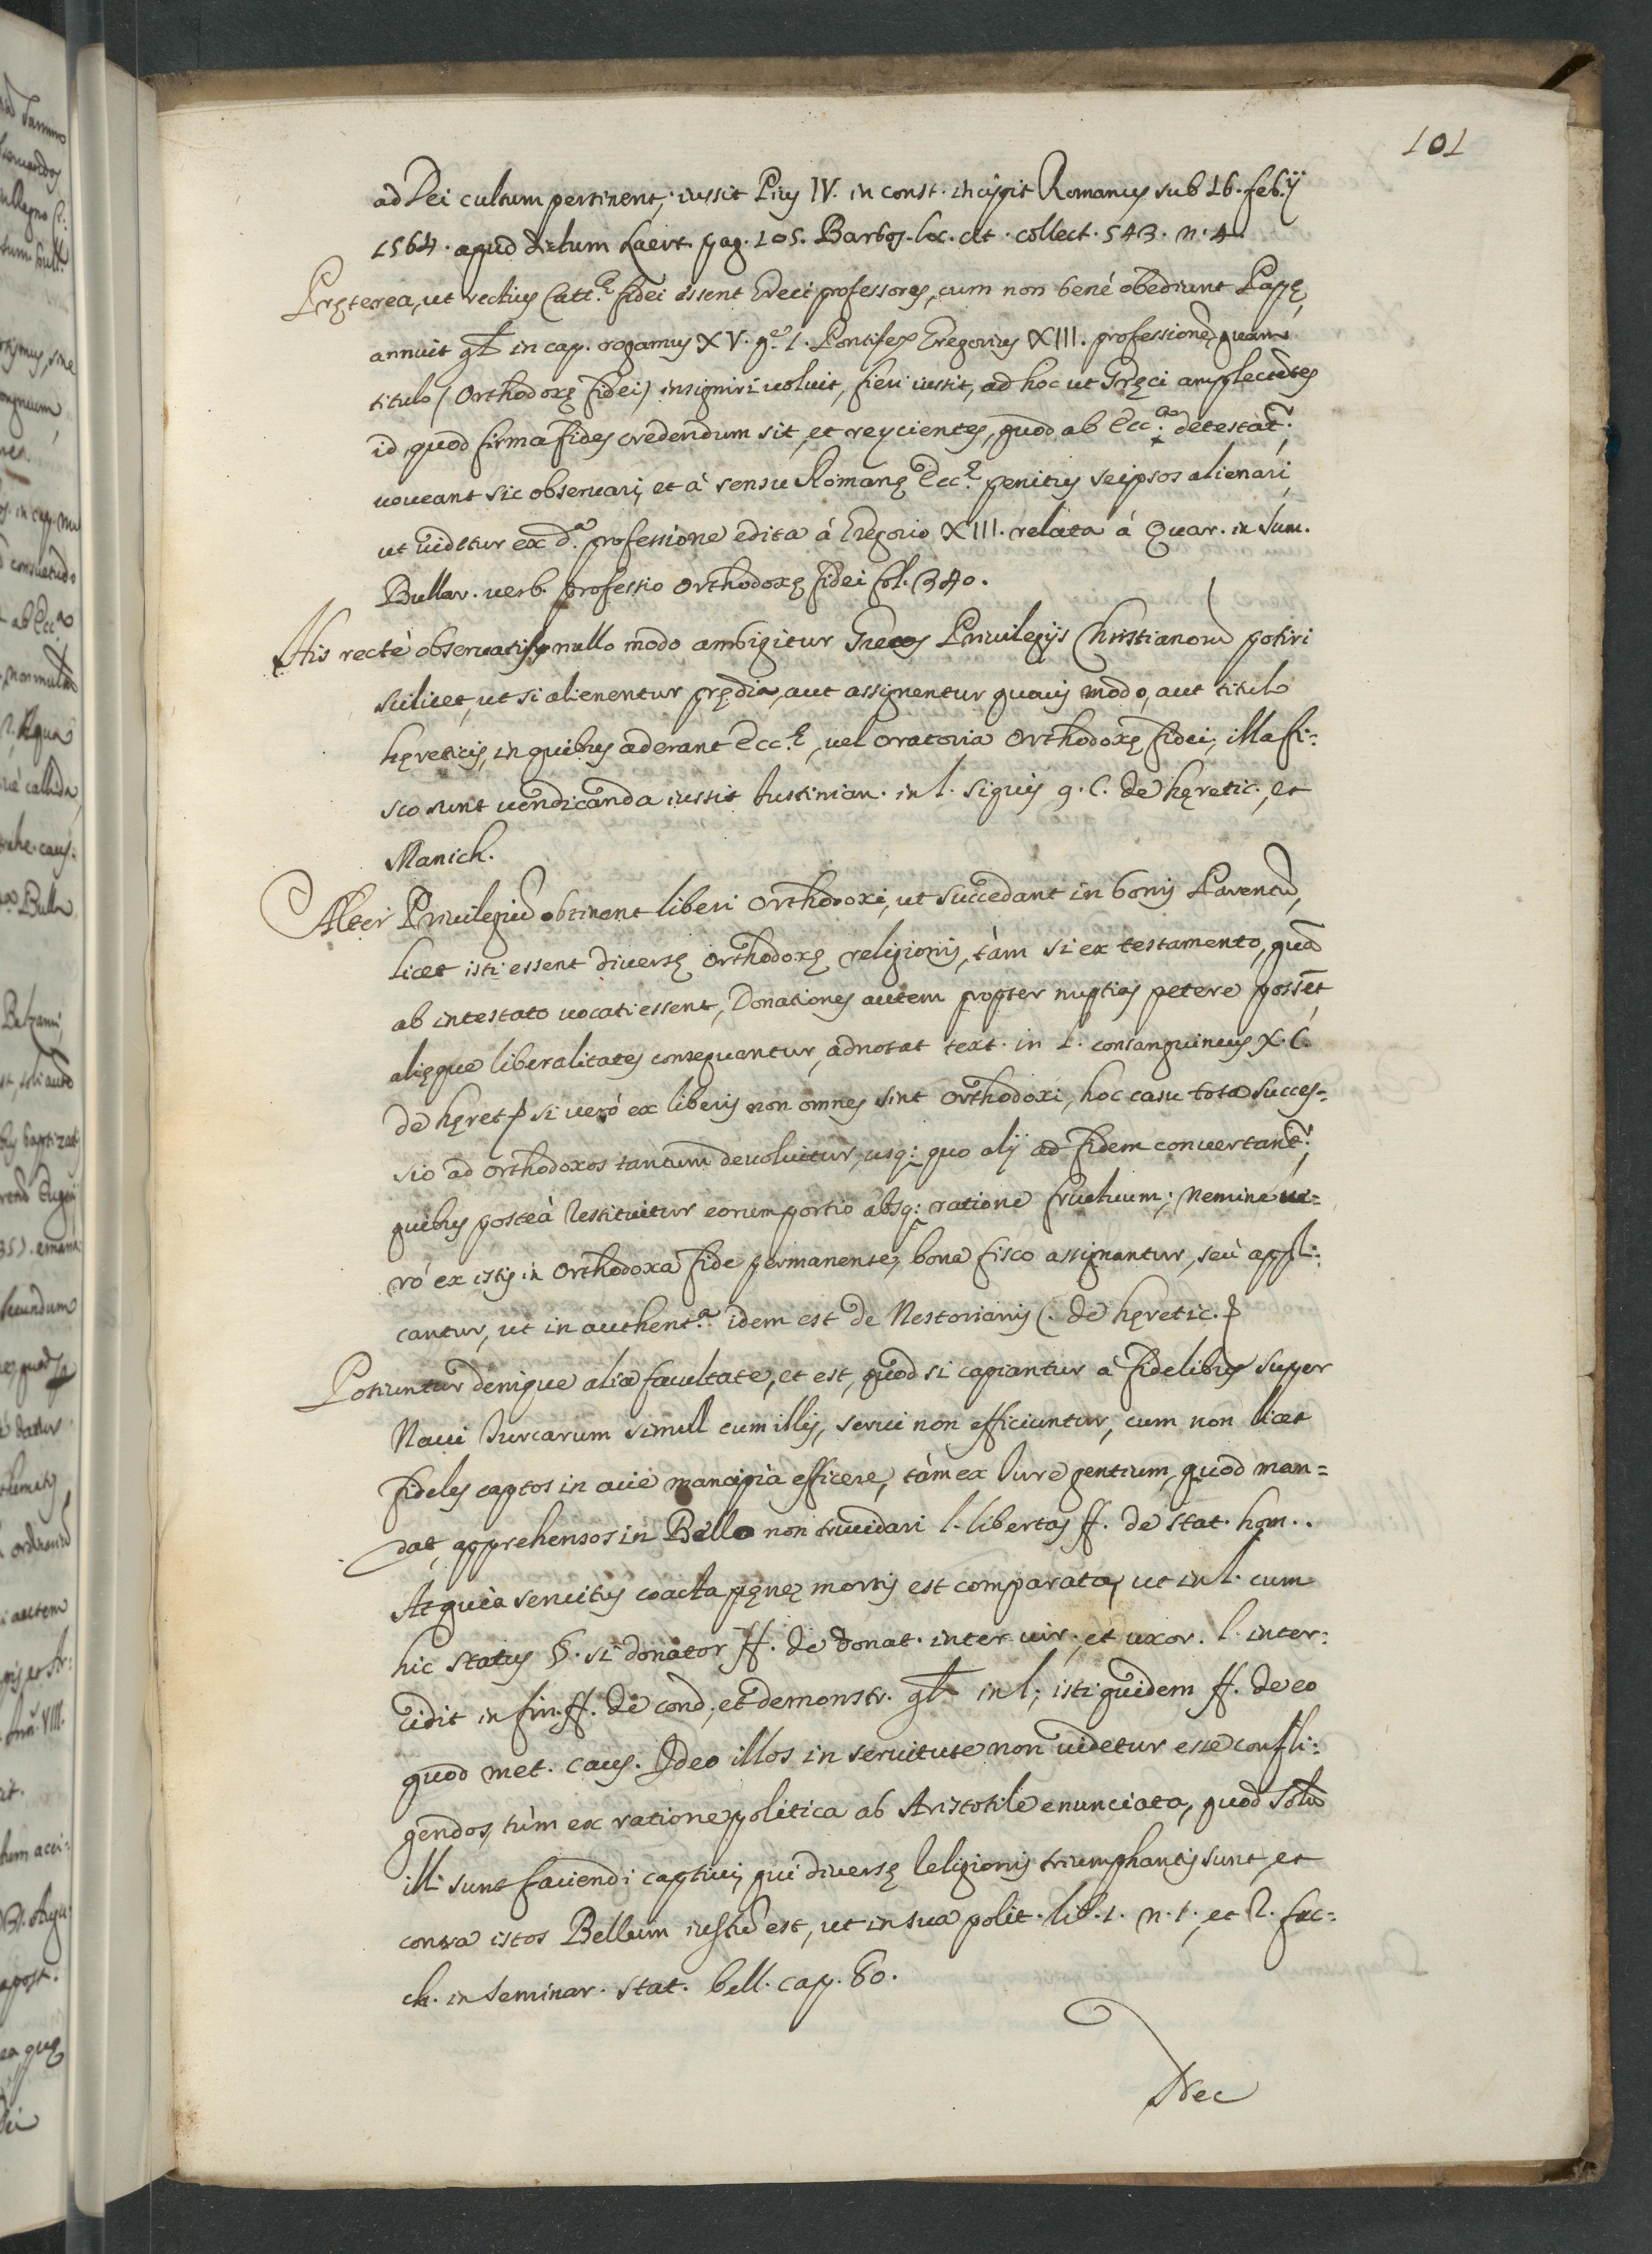 101
ad Dei cultum pertinent, iussit Pius IV. in const. incipit Romanus sub 16. feb.ij
1564. apud dictum Laert. pag. 105. Barbos. loc. cit. collect. 543. n. 4.
Pręterea, ut rectius Catt.ę fidei essent Gręci professores, cum non bené obediant Papę,
annuit gł in cap. rogamus XV. q. 1. Pontifex Gregorius XIII. professionē, quam
titulo (Orthodoxę fidei) insigniri uoluit, fieri iussit, ad hoc ut Gręci amplectētes
id, quod firma fides credendum sit, et reycientes, quod ab Ecc.a detestat.r
uoueant sic obseruari, et à sensu Romanę Ecc.ę penitus seipsos alienari,
ut uidetur ex d.a professione edita á Gregorio XIII. relata á Quar. in Sum.
Bullar. uerb. professio Orthodoxę fidei fol. 340.
His recté obseruatis nullo modo ambigitur Grecos Priuilegijs Christianorū potiri
scilicet, ut si alienentur prędia, aut assignentur quouis modo, aut titulo
hęreticis, in quibus aderant Ecc.ę, uel oratoria Orthodoxę fidei, illa fi=
sco sunt uendicanda iussit Iustinian. in l. siquis 9. C. de hęretic., et
Manich.
Alter Priuilegiū obtinent liberi Orthodoxi, ut succedant in bonis Parentū,
licet isti essent diuersę Orthodoxę religionis, tàm si ex testamento, quā
ab intestato uocati essent, Donationes autem propter nuptias petere possēt,
alięque liberalitates consequantur, adnotat text. in L. consanguineus X. C.
de hęret. si veró ex liberis non omnes sint Orthodoxi, hoc casu tota succes=
sio ad orthodoxos tantum deuoluitur, usq: quo alij ad fidem conuertant.r
quibus posteà restituitur eorum portio absq: ratione fructuum; Nemine ue=
ró ex istis in Orthodoxa fide permanente, bona fisco assignantur, seù appli=
cantur, ut in authent.a idem est de Nestorianis C. de hęretic.
Potiuntur denique alia facultate, et est, quod si capiantur á fidelibus super
Naui Turcarum simul cum illis, serui non efficiuntur, cum non licet
fideles captos in acie mancipia efficere, tàm ex Iure gentium, quod man=
dat, apprehensos in Bello non trucidari l. libertas ff. de stat. hom..
At quia seruitus coacta pęnę mortis est comparata, ut in l. cum
hic status §. si donator ff. de donat. inter uir., et uxor. l. inter=
cidit in fin. ff. de cond., et demonstr. gł in l; isti quidem ff. de eo
quod met. caus. Ideo illos in seruitute non uidetur esse confli=
gendos, tùm ex ratione politica ab Aristotile enunciata, quod solū
illi sunt faciendi captiui, qui diuersę Religionis triumphantis sunt, et
contra istos Bellum iustū est, ut in sua polit. lib. 1. n. 1., et R. fac=
ch. in seminar. stat. bell. cap. 80.
Nec